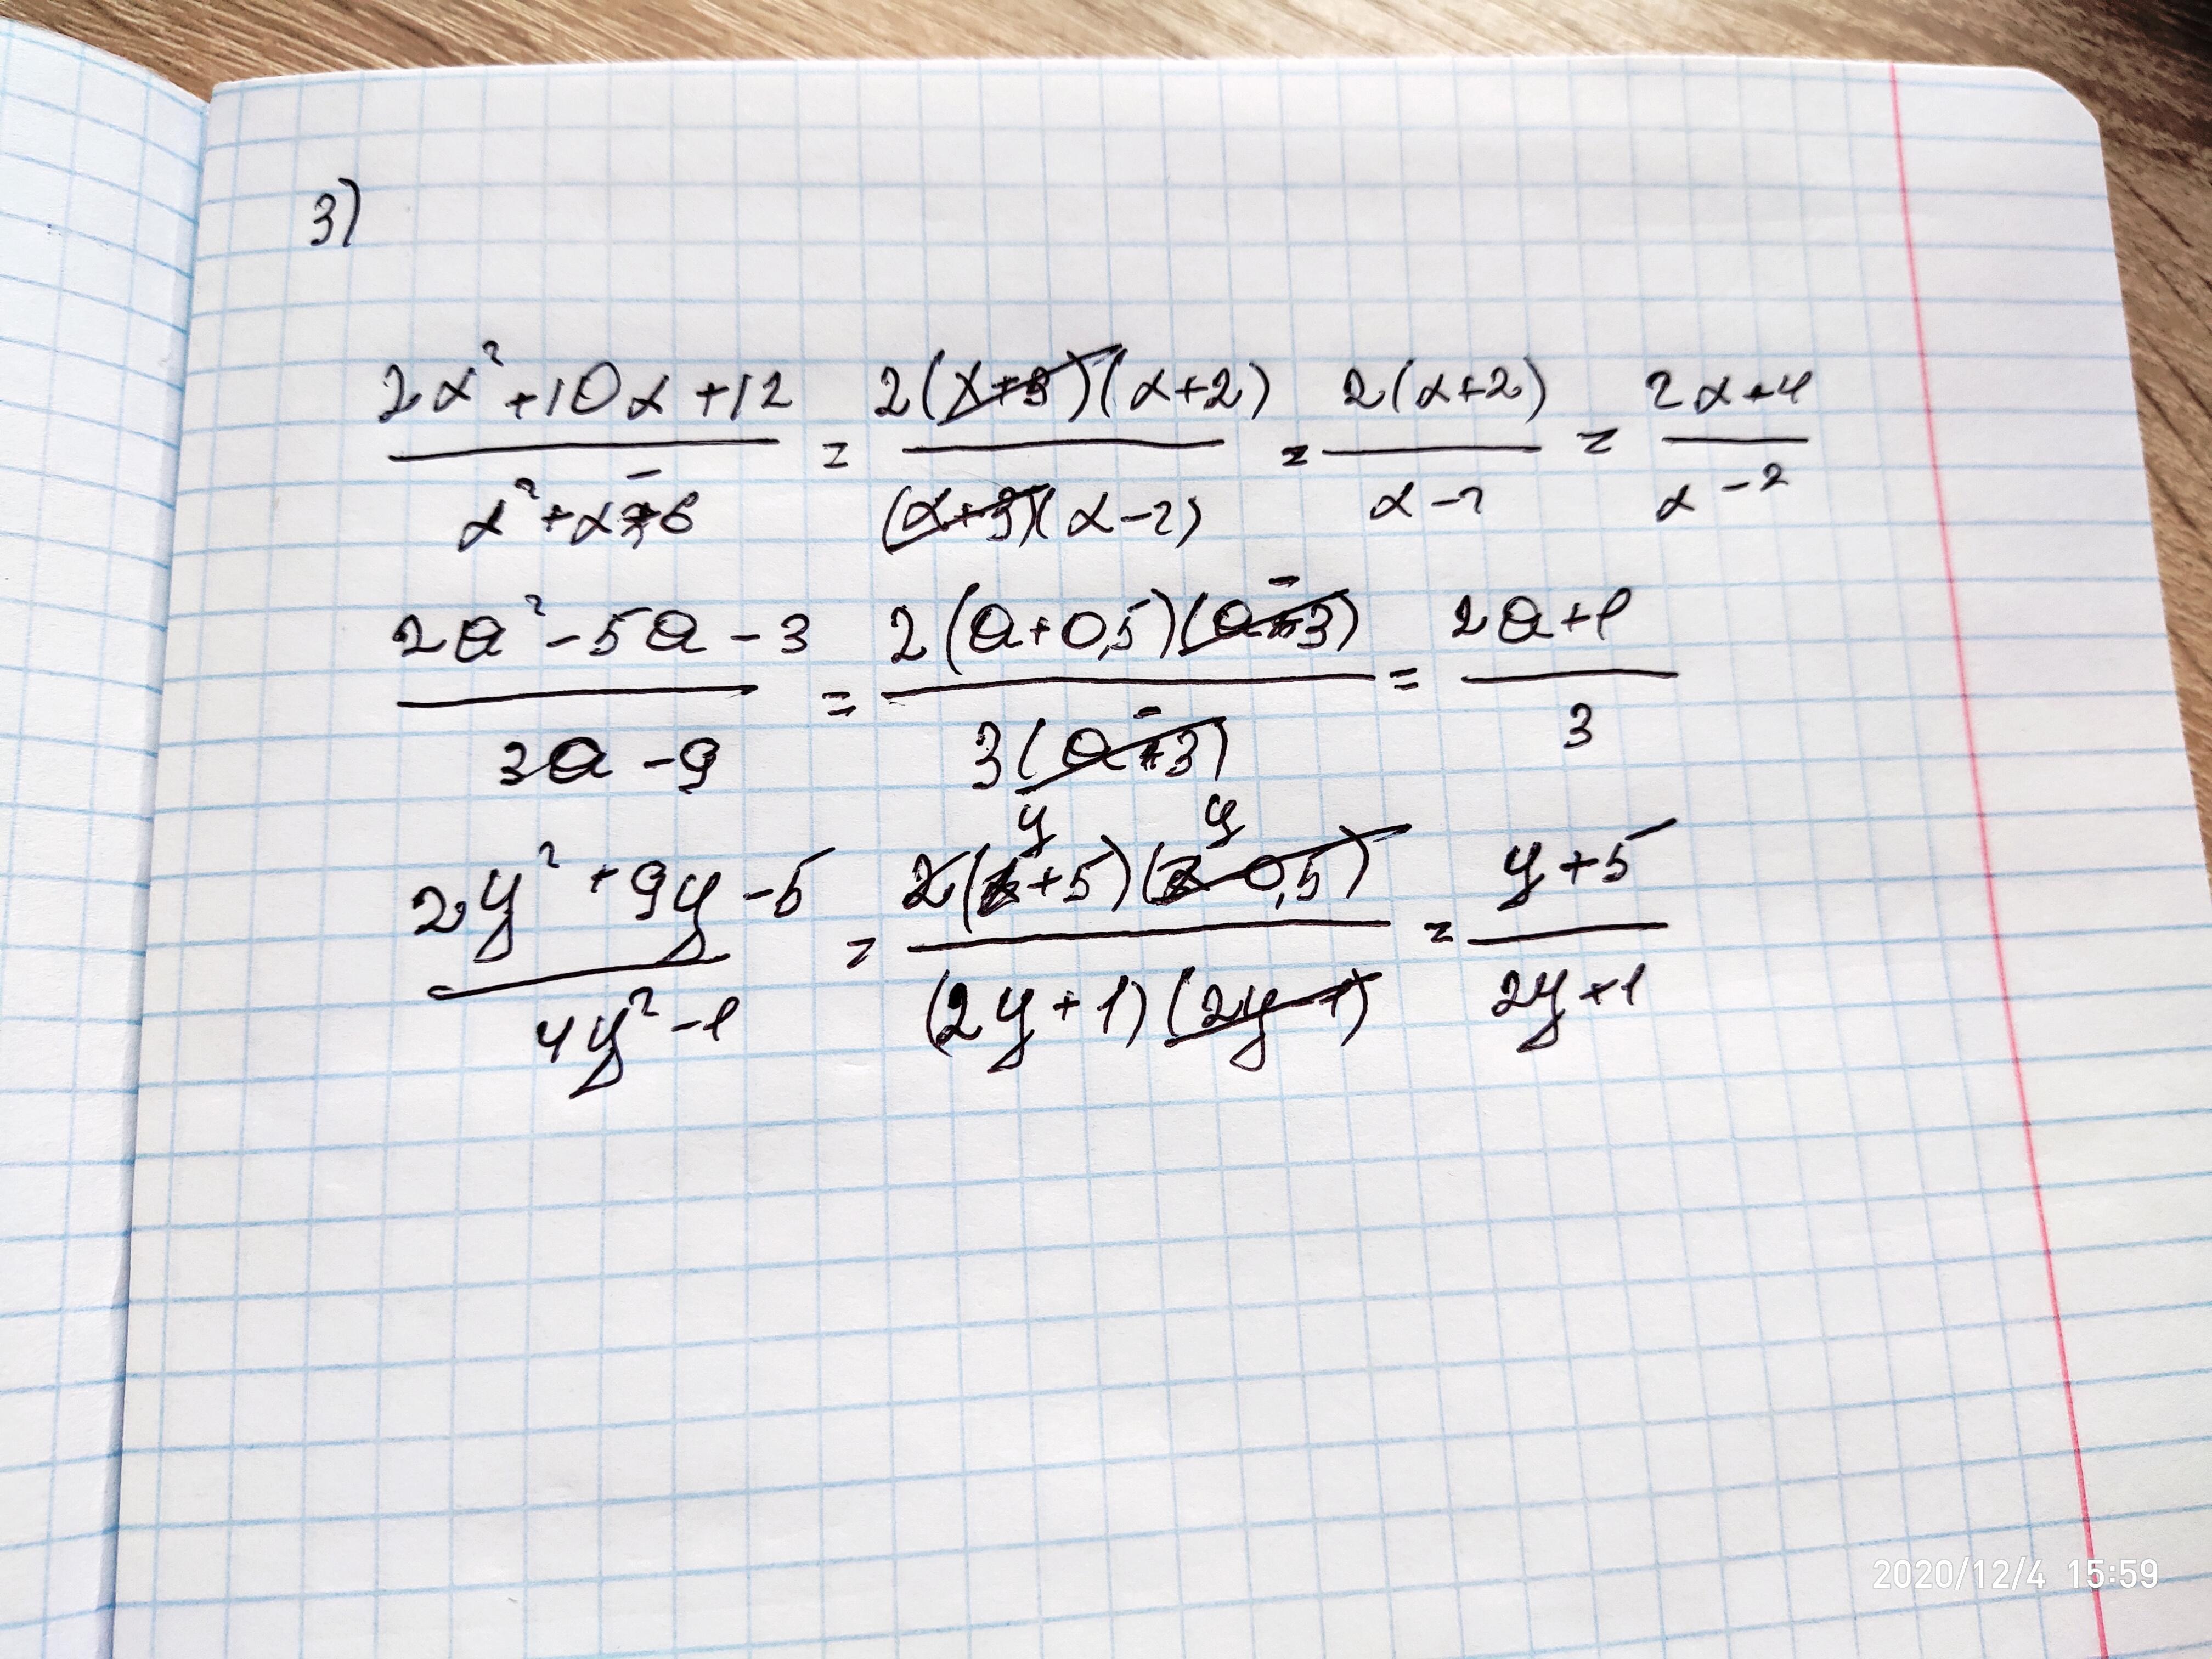 3)
2x²+10x+12 / x²+x-6 = 2(x+3)(x+2) / (x+3)(x-2) = 2(x+2) / x-2 = 2x+4 / x-2
2a²-5a-3 / 3a-9 = 2(a+0,5)(a-3) / 3(a-3) = 2a+1 / 3
2y²+9y-5 / 4y²-1 = 2(y+5)(y-0,5) / (2y+1)(2y-1) = y+5 / 2y+1
2020/12/4 15:59